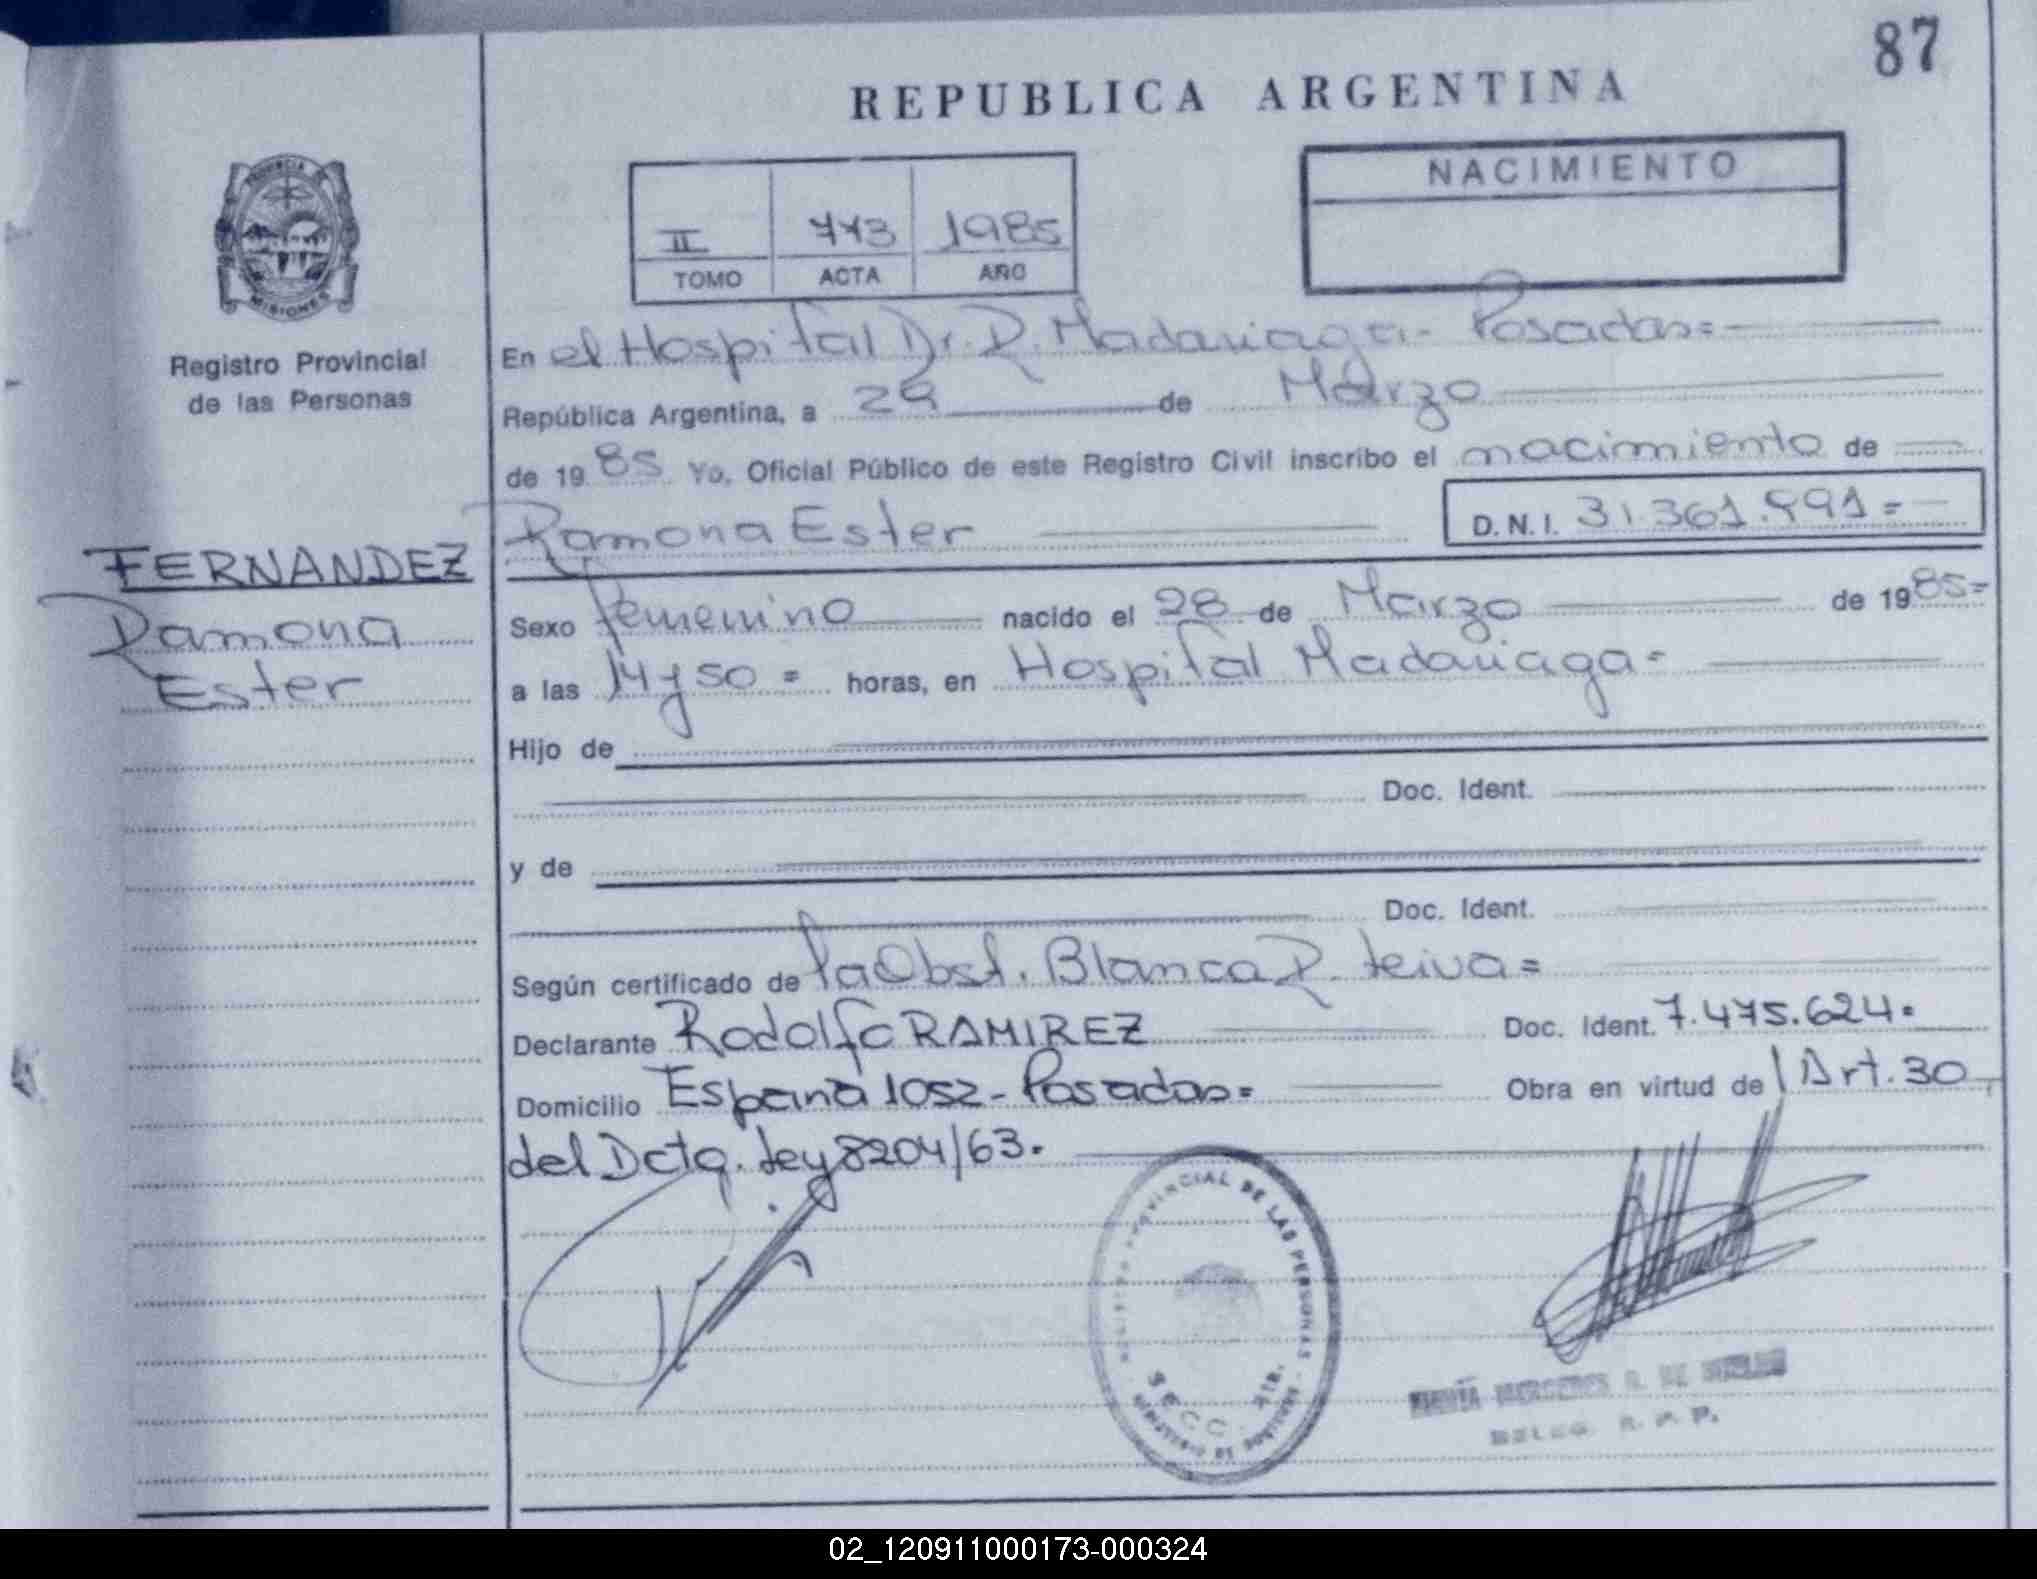 87
REPUBLICA ARGENTINA
NACIMIENTO
II 773 1985
TOMO ACTA AÑO
PROVINCIA
MISIONES
Registro Provincial
de las Personas
FERNANDEZ
Ramona
Ester
En el Hospital Dr. R. Madariaga - Posadas=
República Argentina, a 29 de Marzo
de 1985 Yo, Oficial Público de este Registro Civil inscribo el nacimiento de
Ramona Ester D.N.I. 31.361.991=
Sexo femenino nacido el 28 de Marzo de 1985=
a las 14 y 50 = horas, en Hospital Madariaga=
Hijo de
Doc. Ident.
y de
Doc. Ident.
Según certificado de la Obst. Blanca R. Leiva=
Declarante Rodolfo RAMIREZ Doc. Ident. 7.475.624.
Domicilio España 1052 - Posadas= Obra en virtud del Art. 30
del Dcto. Ley 8204/63.
PROVINCIAL DE LAS PERSONAS
SECC.
MERCEDES R. DE
R. P. P.
02_120911000173-000324